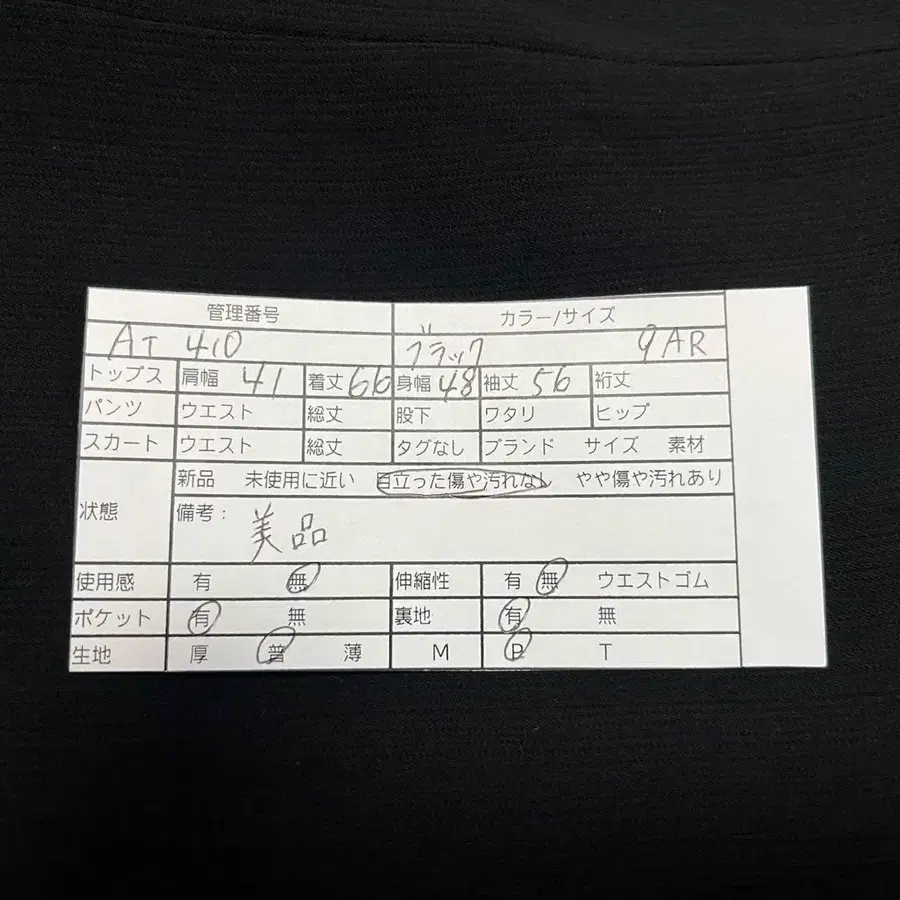 管理番号 カラー/サイズ
AT 410 ブラック 9AR
トップス 肩幅 41 着丈 66 身幅 48 袖丈 56 裄丈
パンツ ウエスト 総丈 股下 ワタリ ヒップ
スカート ウエスト 総丈 タグなし ブランド サイズ 素材
状態 新品 未使用に近い 目立った傷や汚れなし やや傷や汚れあり
備考: 美品
使用感 有 無 伸縮性 有 無 ウエストゴム
ポケット 有 無 裏地 有 無
生地 厚 普 薄 M P T